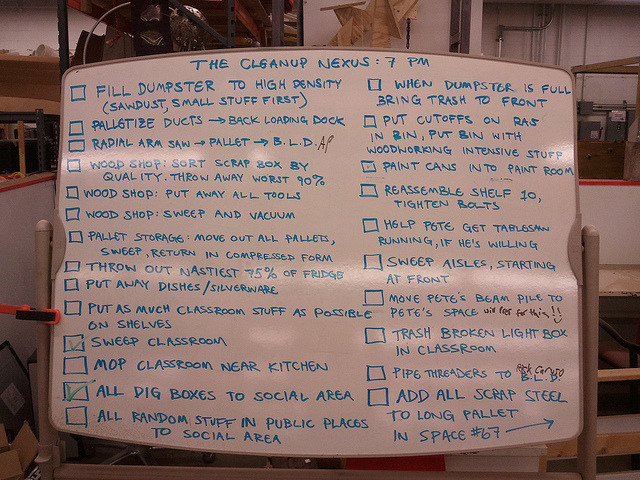 THE CLEANUP NEXUS: 7 PM
FILL DUMPSTER TO HIGH DENSITY
(SAWDUST, SMALL STUFF FIRST)
PALLETIZE DUCTS → BACK LOADING DOCK
RADIAL ARM SAW → PALLET → B.L.D.
WOOD SHOP: SORT SCRAP BOX BY
QUALITY. THROW AWAY WORST 90%
WOOD SHOP: PUT AWAY ALL TOOLS
WOOD SHOP: SWEEP AND VACUUM
PALLET STORAGE: MOVE OUT ALL PALLETS,
SWEEP, RETURN IN COMPRESSED FORM
THROW OUT NASTIEST 75% OF FRIDGE
PUT AWAY DISHES/SILVERWARE
PUT AS MUCH CLASSROOM STUFF AS POSSIBLE
ON SHELVES
SWEEP CLASSROOM
MOP CLASSROOM NEAR KITCHEN
ALL DIG BOXES TO SOCIAL AREA
ALL RANDOM STUFF IN PUBLIC PLACES
TO SOCIAL AREA
WHEN DUMPSTER IS FULL
BRING TRASH TO FRONT
PUT CUTOFFS ON RAS
IN BIN, PUT BIN WITH
WOODWORKING INTENSIVE STUFF
PAINT CANS INTO PAINT ROOM
REASSEMBLE SHELF 10,
TIGHTEN BOLTS
HELP PETE GET TABLESAW
RUNNING, IF HE'S WILLING
SWEEP AISLES, STARTING
AT FRONT
MOVE PETE'S BEAM PILE TO
PETE'S SPACE
TRASH BROKEN LIGHT BOX
IN CLASSROOM
PIPE THREADERS TO B.L.D.
ADD ALL SCRAP STEEL
TO LONG PALLET
IN SPACE #67 →